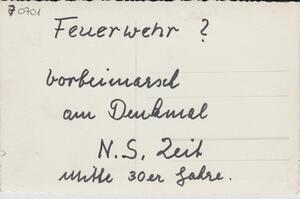 70901
Feuerwehr ?
vorbeimarsch
am Denkmal
N.S. Zeit
Mitte 30er Jahre.